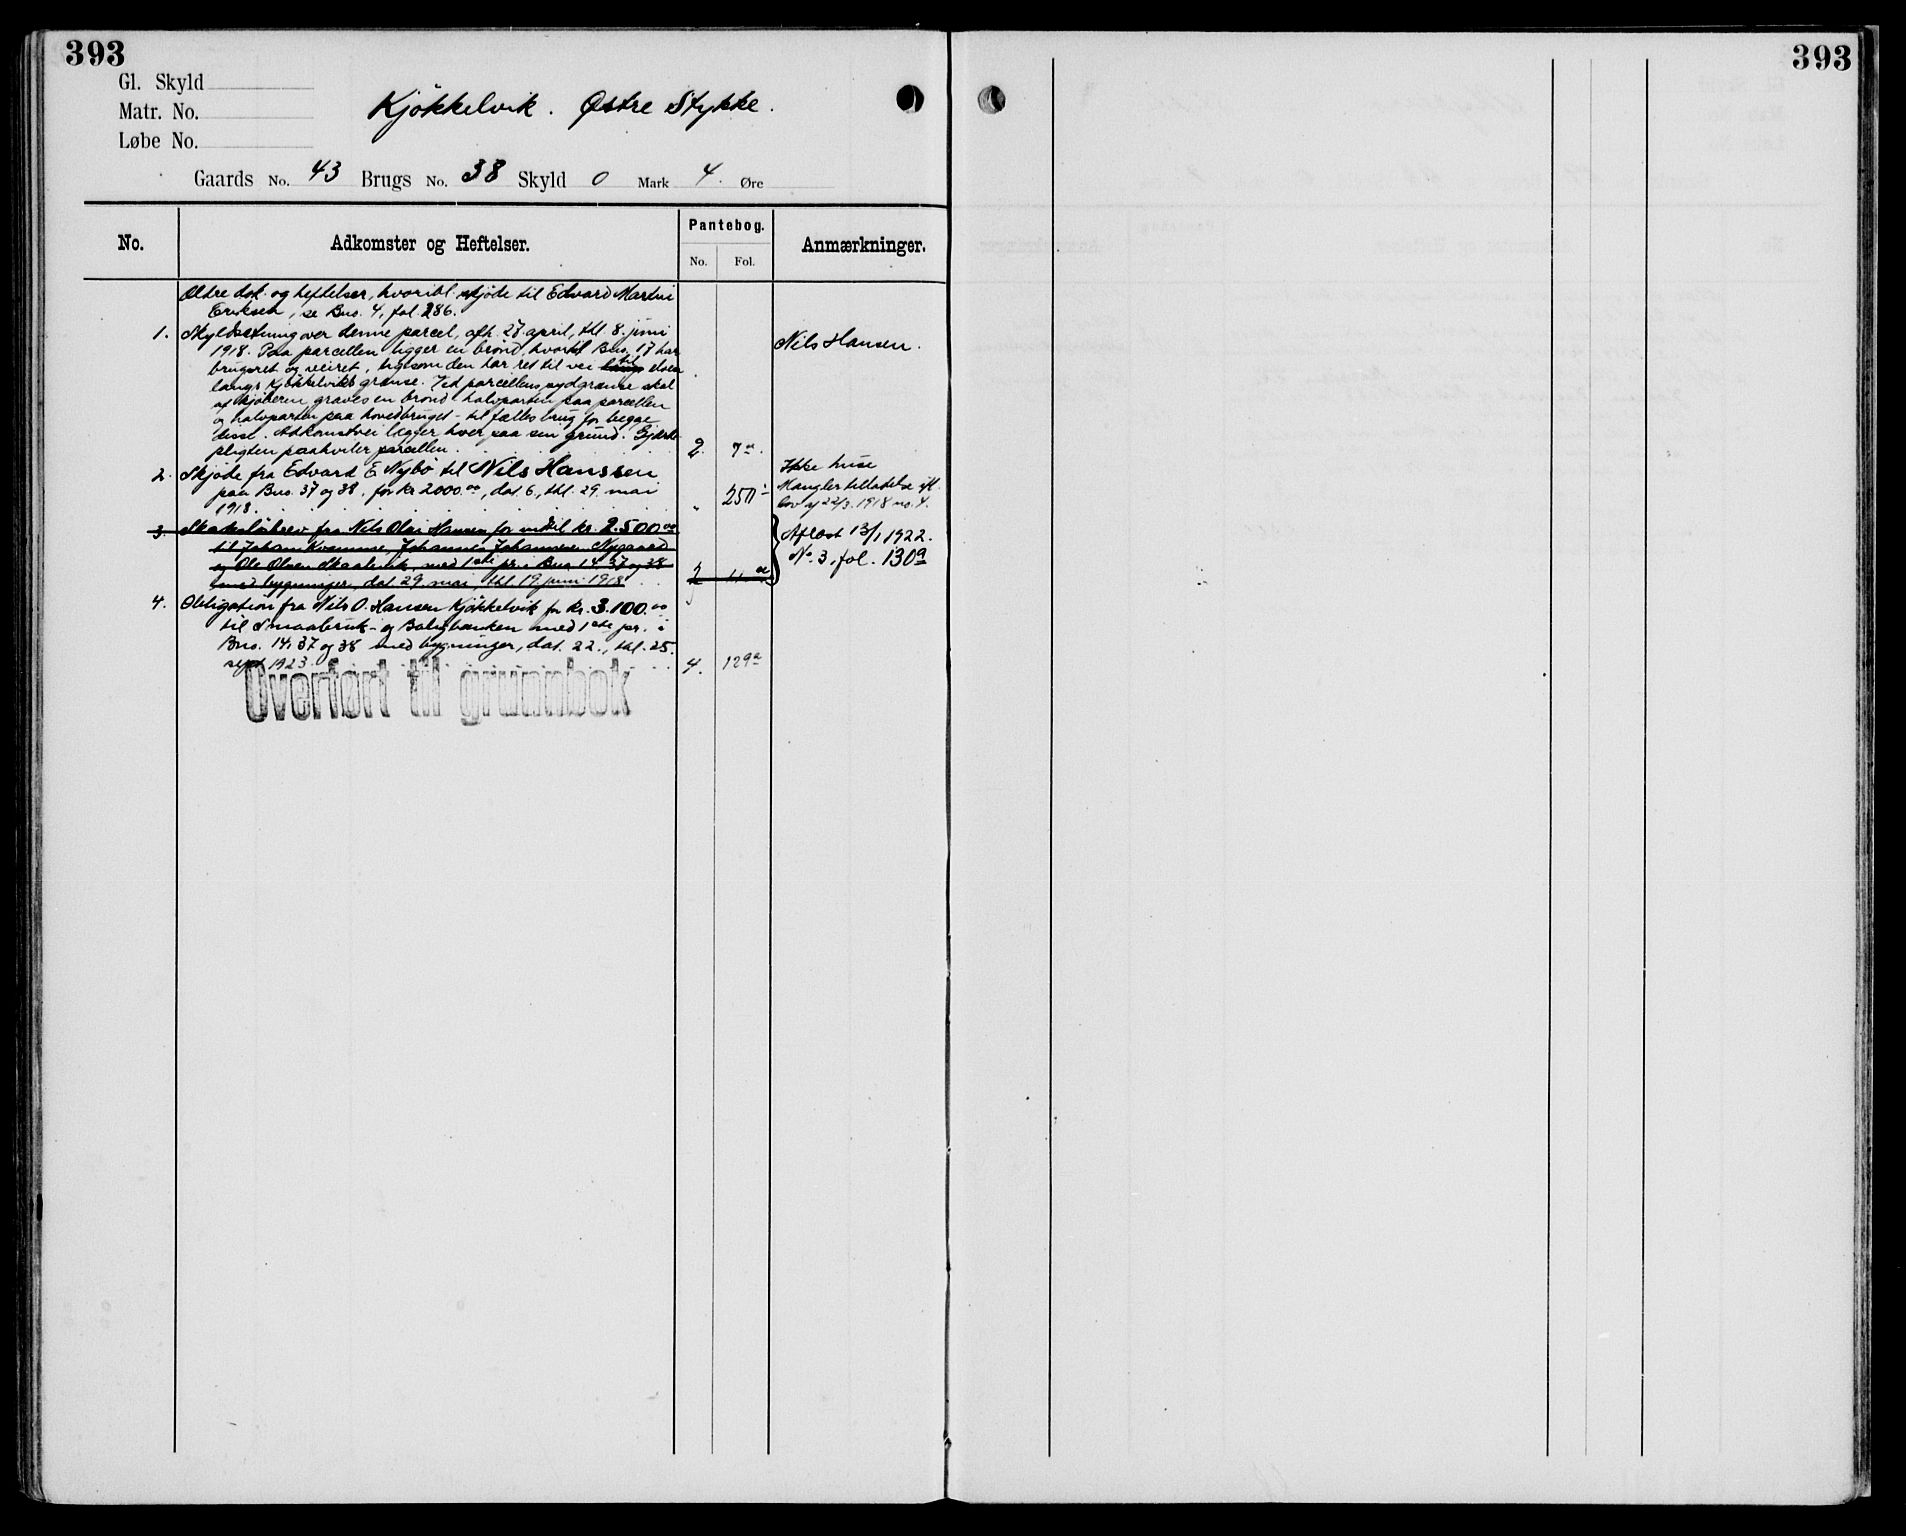 393
393
Gl. Skyld
Matr. No.
Løbe No.
Kjökkelvik. Østre Stykke.
Gaards No. 43 Brugs No. 38 Skyld 0 Mark 4 Øre
No.
Adkomster og Heftelser.
Pantebog.
No. Fol.
Anmærkninger.
Ældre dok. og heftelser, hvoribl. skjöde til Edvard Martin
Eriksen, se Bno. 4, fol. 286.
1. Skyldsetning over denne parcel, afh. 27 april, thl. 8. juni
1918. Paa parcellen ligger en brönd, hvortil Bno. 17 har
brugsret og veiret, ligesom den har ret til vei til elven
langs Kjökkelviks grænse. Ved parcellens sydgrænse skal
af kjöberen graves en brönd - halvparten paa parcellen
og halvparten paa hovedbruget - til fælles brug for begge
disse. Adkomstvei lægger hver paa sin grund. Gjærde-
pligten paahviler parcellen. 2. 7a.
Nils Hansen.
2. Skjöde fra Edvard E Nybö til Nils Hanssen
paa Bno. 37 og 38, for kr 2000.00, dat. 6., thl. 29. mai
1918. " 250
Ikke huse
Mangler tilladelse ifl.
lov af 22/3. 1918 no. 4.
3. Skadeslösbrev fra Nils Olai Hansen for indtil kr. 2.500.00
til Johan Kvamme, Johannes Johannesen Nygaard
og Ole Olsen Skaalevik, med 1ste pr. i Bno 14, 37 og 38
med bygninger, dat 29 mai, thl. 19 juni 1918 2 11a
Aflöst 13/1 1922.
No. 3, fol. 130a
4. Obligation fra Nils O. Hansen Kjökkelvik for kr. 3.100.00
til Smaabruk- og Boligbanken med 1ste pr. i
Bno. 14, 37 og 38 med bygninger, dat. 22., thl. 25.
sept 1923. 4. 129a
Overført til grunnbok